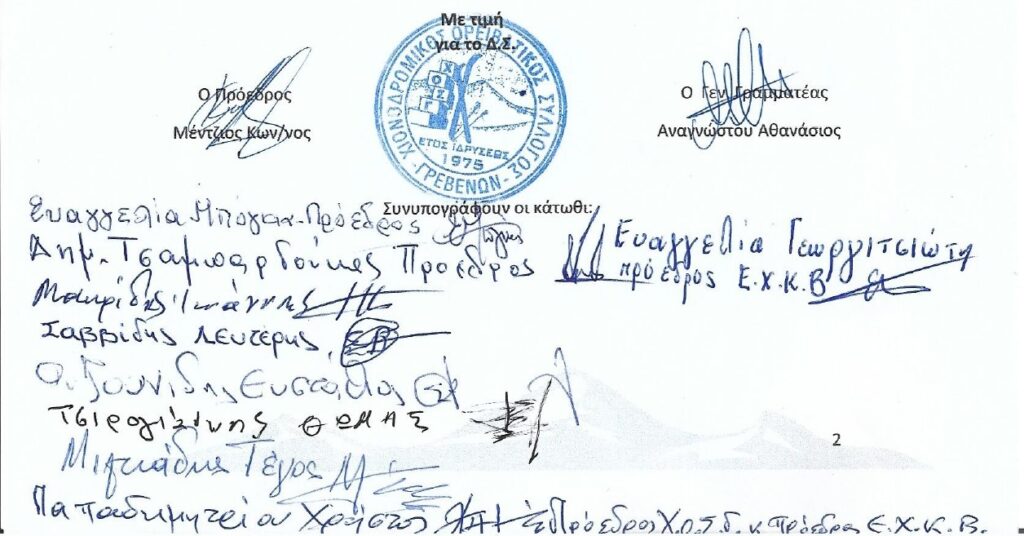 Με τιμή
για το Δ.Σ.
Ο Πρόεδρος
Μέντζιος Κων/νος
ΧΙΟΝΟΔΡΟΜΙΚΟΣ ΟΡΕΙΒΑΤΙΚΟΣ ΣΥΛΛΟΓΟΣ ΓΡΕΒΕΝΩΝ
ΧΟΣΓ
ΕΤΟΣ ΙΔΡΥΣΕΩΣ
1975
Ο Γεν. Γραμματέας
Αναγνώστου Αθανάσιος
Συνυπογράφουν οι κάτωθι:
Ευαγγελία Μπόγκα-Πρόεδρος
Δημ. Τσαμπαρδούκας Πρόεδρος
Ευαγγελία Γεωργιτσιώτη
πρόεδρος Ε.Χ.Κ.Β
Μακρίδης Ιωάννης
Σαββίδης Λευτέρης
Ευσταθία
Τσιρογιάννης ΘΩΜΑΣ
Μιλτιάδης Τέγος
2
Παπαδημητρίου Χρήστος Πρόεδρος Χ.Ο.Σ.Δ. κ Πρόεδρος Ε.Χ.Κ.Β.